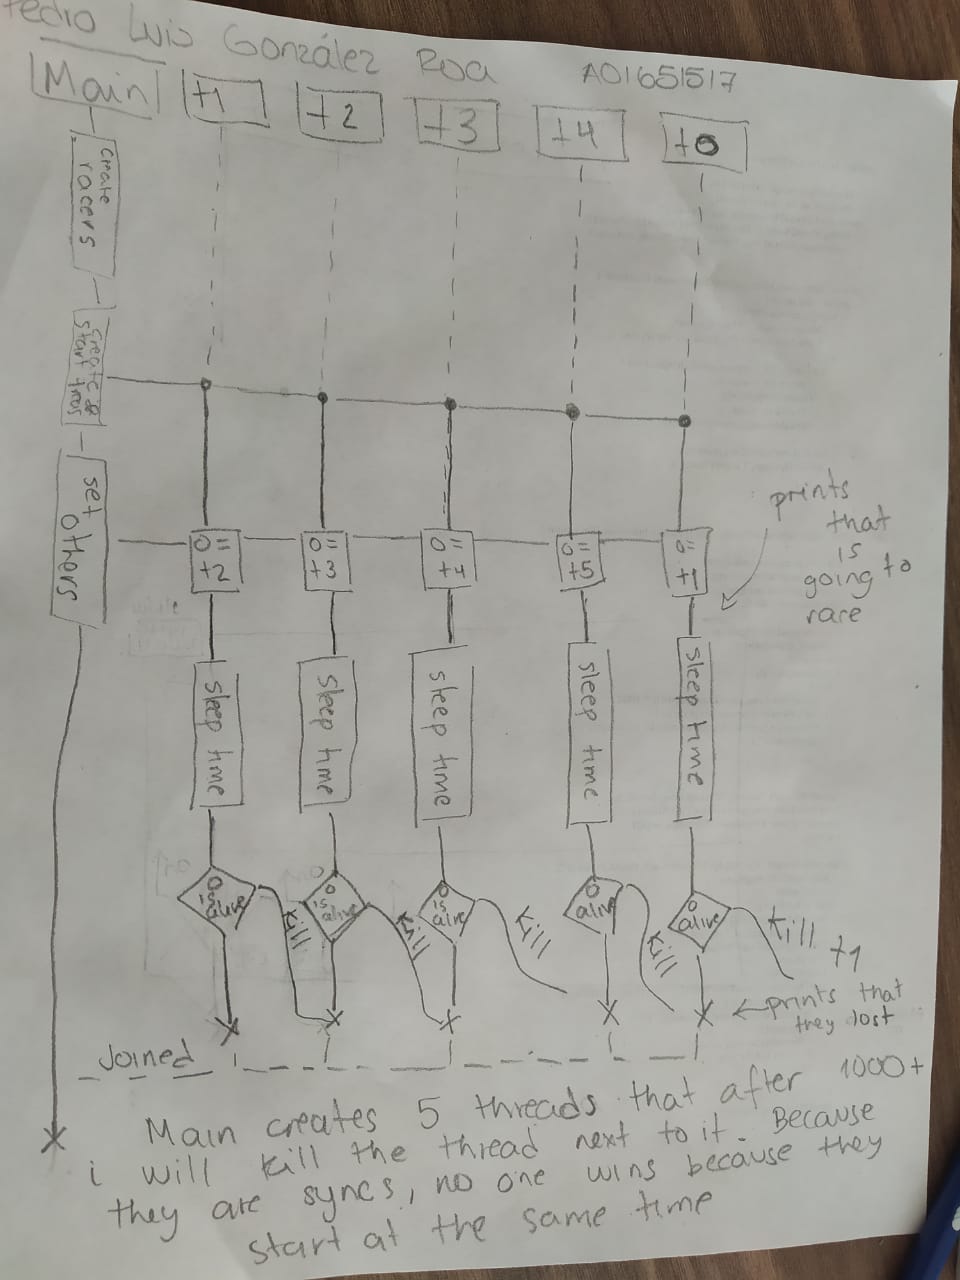 Pedro Luis González Roa A01651517
Main t1 t2 t3 t4 t0
Create
racers
Create &
start
set
others
0=
t2
0=
t3
0=
t4
0=
t5
0=
t1
prints
that
is
going to
rare
sleep time
sleep time
sleep time
sleep time
sleep time
O is
alive
O
is
alive
O
is
alive
O
alive
O
alive
Kill
Kill
Kill
Kill
Kill t1
prints that
they lost
Joined
Main creates 5 threads that after 1000+
i will kill the thread next to it. Because
they are syncs, no one wins because they
start at the same time